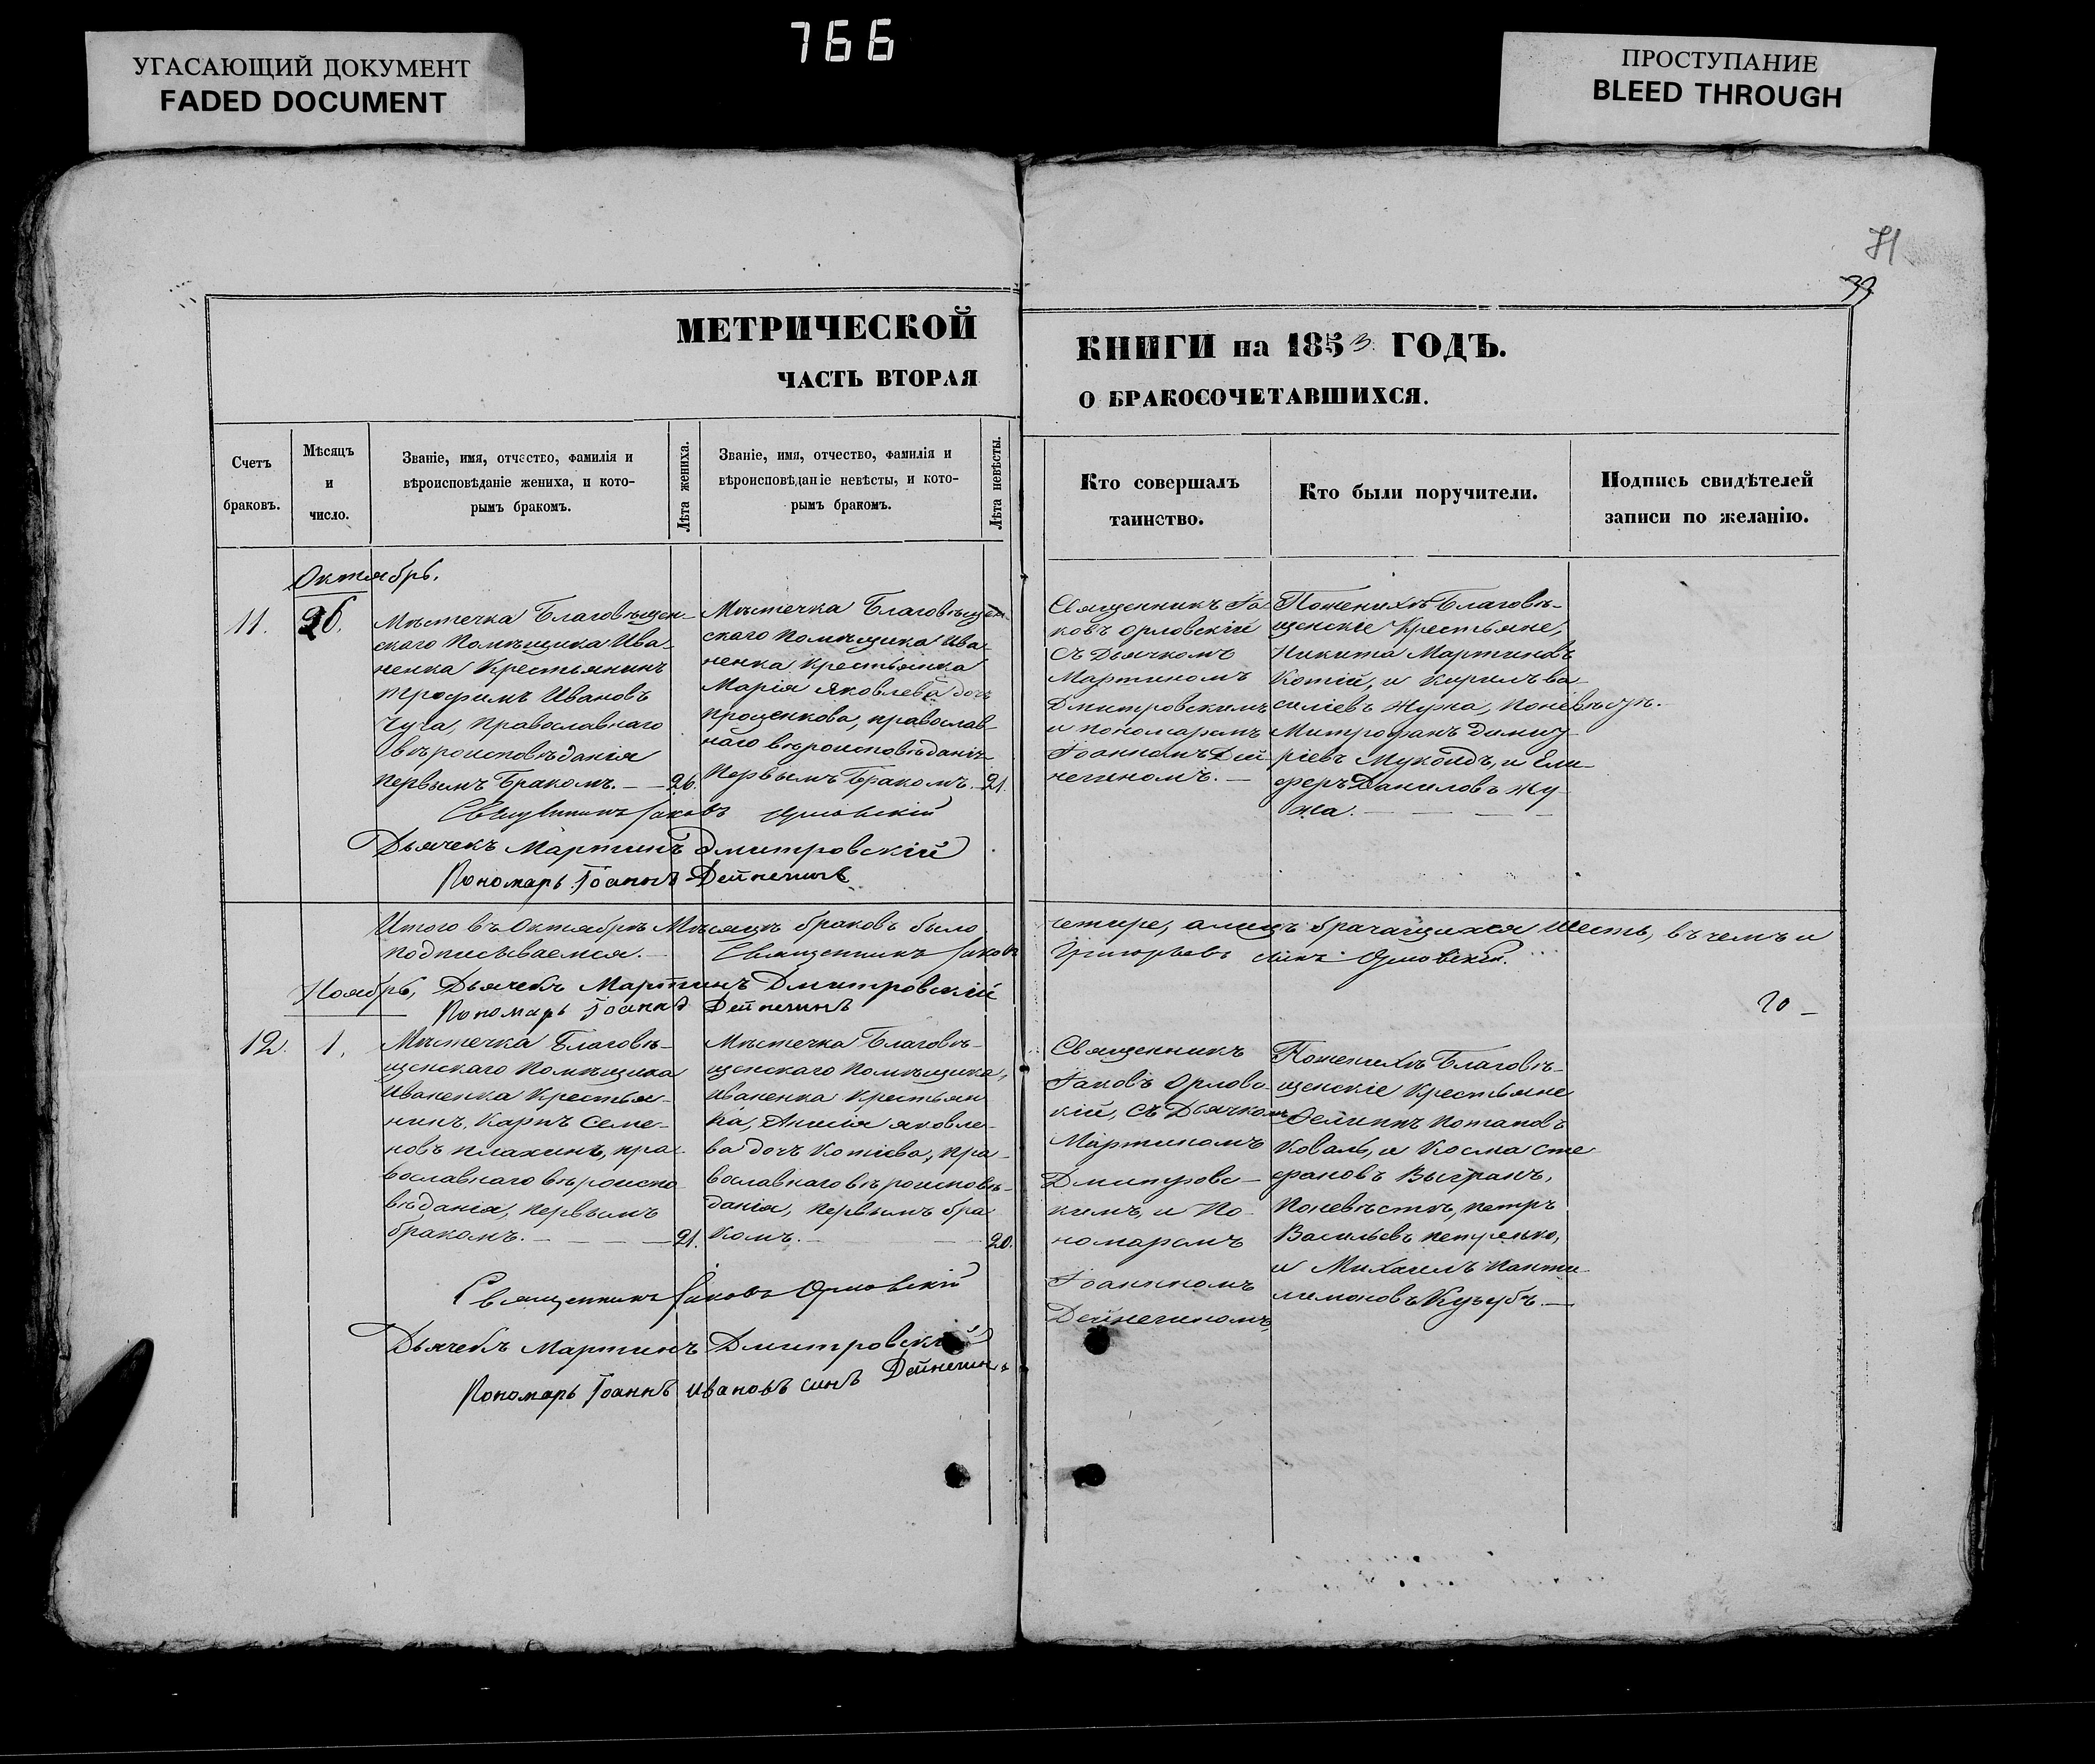 766
УГАСАЮЩИЙ ДОКУМЕНТ
FADED DOCUMENT
ПРОСТУПАНИЕ
BLEED THROUGH
71
39
МЕТРИЧЕСКОЙ
ЧАСТЬ ВТОРАЯ
КНИГИ на 1853 ГОДЪ.
О БРАКОСОЧЕТАВШИХСЯ.
Счетъ
браковъ.
Мѣсяцъ
и
число.
Званіе, имя, отчество, фамилія и
вѣроисповѣданіе жениха, и кото-
рымъ бракомъ.
Лѣта жениха.
Званіе, имя, отчество, фамилія и
вѣроисповѣданіе невѣсты, и кото-
рымъ бракомъ.
Лѣта невѣсты.
Кто совершалъ
таинство.
Кто были поручители.
Подпись свидѣтелей
записи по желанію.
Октябрь.
11.
26.
Мѣстечка Благовѣщен-
скаго Помѣщика Ива-
ненка Крестьянинъ
Трофимъ Ивановъ
Чуча, Православнаго
вѣроисповѣданія
первымъ Бракомъ. — 26.
Мѣстечка Благовѣщен-
скаго Помѣщика Ива-
ненка Крестьянка
Марія Яковлева дочь
Проценкова, православ-
наго вѣроисповѣданія
Первымъ Бракомъ. 21.
Священникъ Іа-
ковъ Орловскій
Съ Дьячкомъ
Мартиномъ
Дмитровскимъ
и пономаремъ
Іоанномъ Дей-
негиномъ. —
По женихѣ Благовѣ-
щенскіе Крестьяне,
Никита Мартиновъ
Котій, и Кирилъ Ва-
силіевъ Жужа, по невѣсту.
Митрофанъ Димит-
ріевъ Мукоидъ, и Ели-
феръ Даниловъ Жу-
жа. —
Священникъ Іаковъ Орловскій
Дьячекъ Мартинъ Дмитровскій
Пономарь Іоаннъ Дейнегинъ
Итого въ Октябрѣ Мѣсяцѣ браковъ было
четире, а лицъ брачащихся шесть, въ чемъ и
подписываемся. Священникъ Іаковъ
Григорьевъ синъ Орловскій.
Дьячекъ Мартинъ Дмитровскій
Пономарь Іоаннъ Дейнегинъ
20 —
Ноябрь,
12.
1.
Мѣстечка Благовѣ-
щенскаго Помѣщика
Иваненка Крестья-
нинъ, Карпъ Семе-
новъ Плахинъ, пра-
вославнаго вѣроиспо-
вѣданія, первымъ
бракомъ. — 21.
Мѣстечка Благовѣ-
щенскаго Помѣщика,
Иваненка Крестьян
ка, Яковле-
ва дочь Котіева, пра-
вославнаго вѣроисповѣ-
данія, первымъ бра
комъ. — 20.
Священникъ
Іаковъ Орловс-
кій, Съ Дьячкомъ
Мартиномъ
Дмитровс-
кимъ, и По-
номаремъ
Іоанномъ
Дейнегиномъ,
По женихѣ Благовѣ-
щенскіе Крестьяне
Филипъ Потаповъ
Коваль, и Косма Сте-
фановъ Выгранъ,
По невѣстѣ, Петръ
Васильевъ Петренко,
и Михаилъ Панти-
лимоновъ Кузубъ. —
Священникъ Іаковъ Орловскій
Дьячекъ Мартинъ Дмитровскій
Пономарь Іоаннъ Ивановъ синъ Дейнегинъ